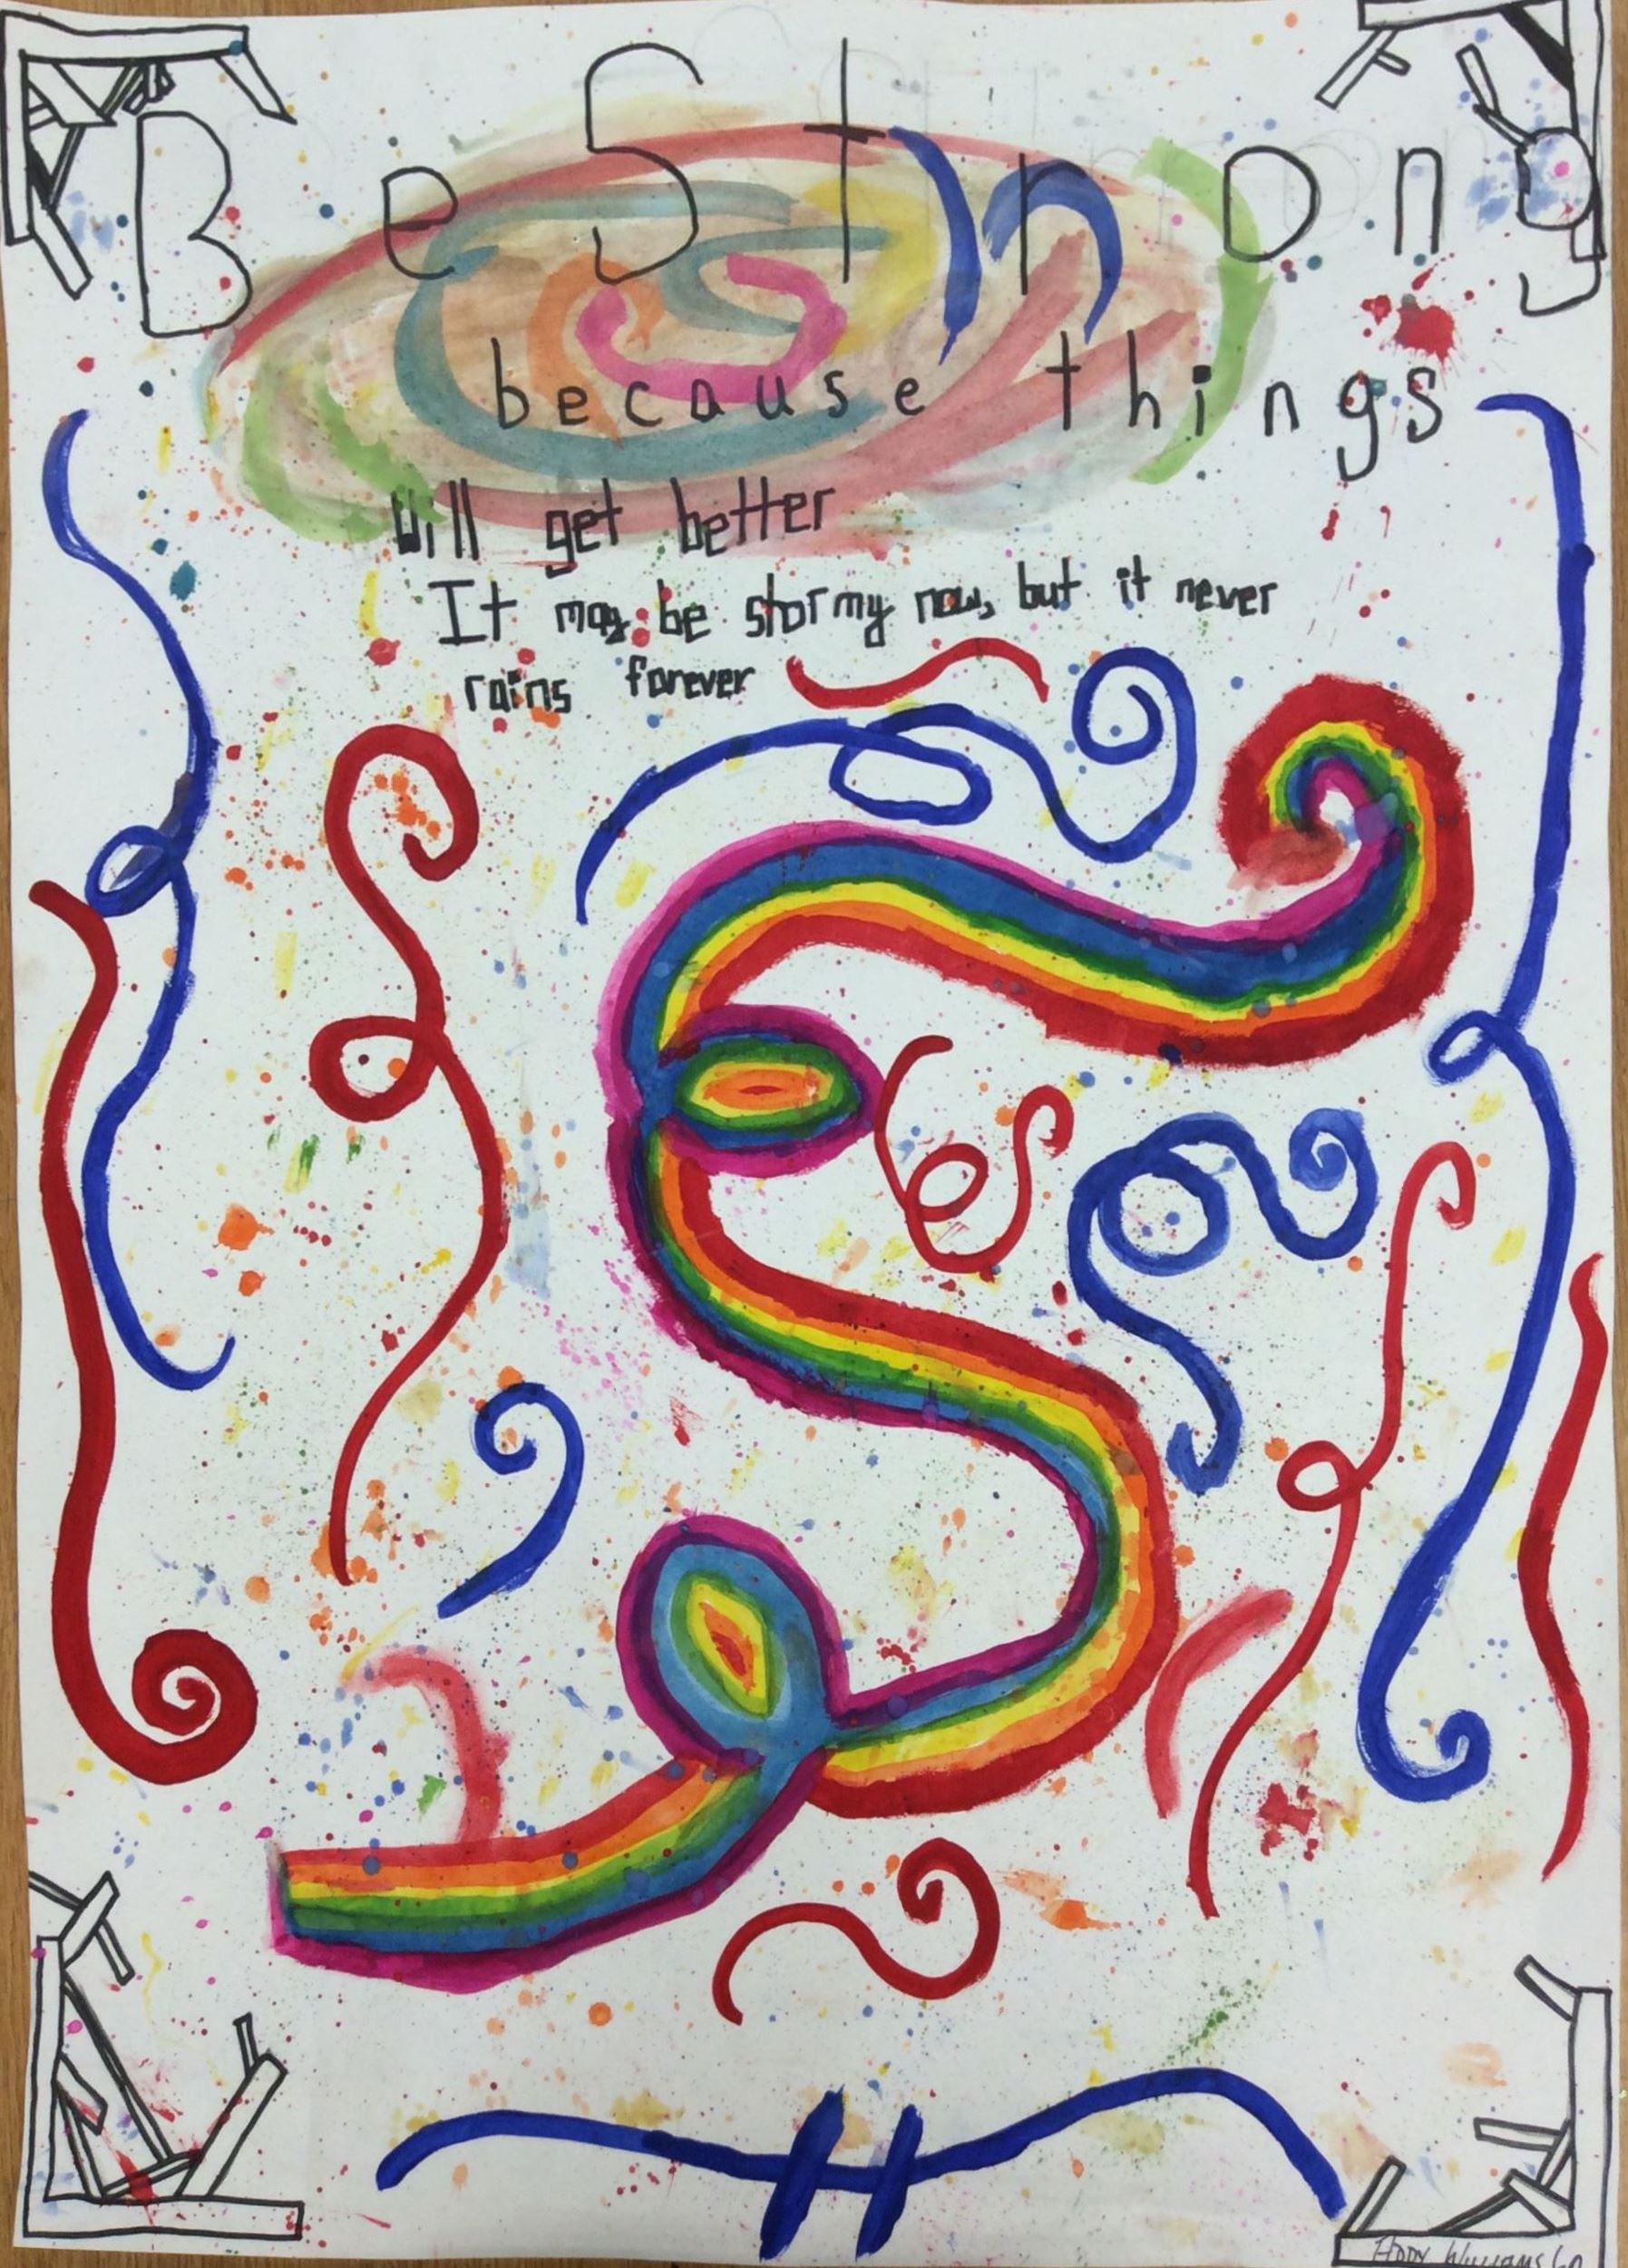 Be Strong
because things
will get better
It may be stormy now, but it never
rains forever
Williams